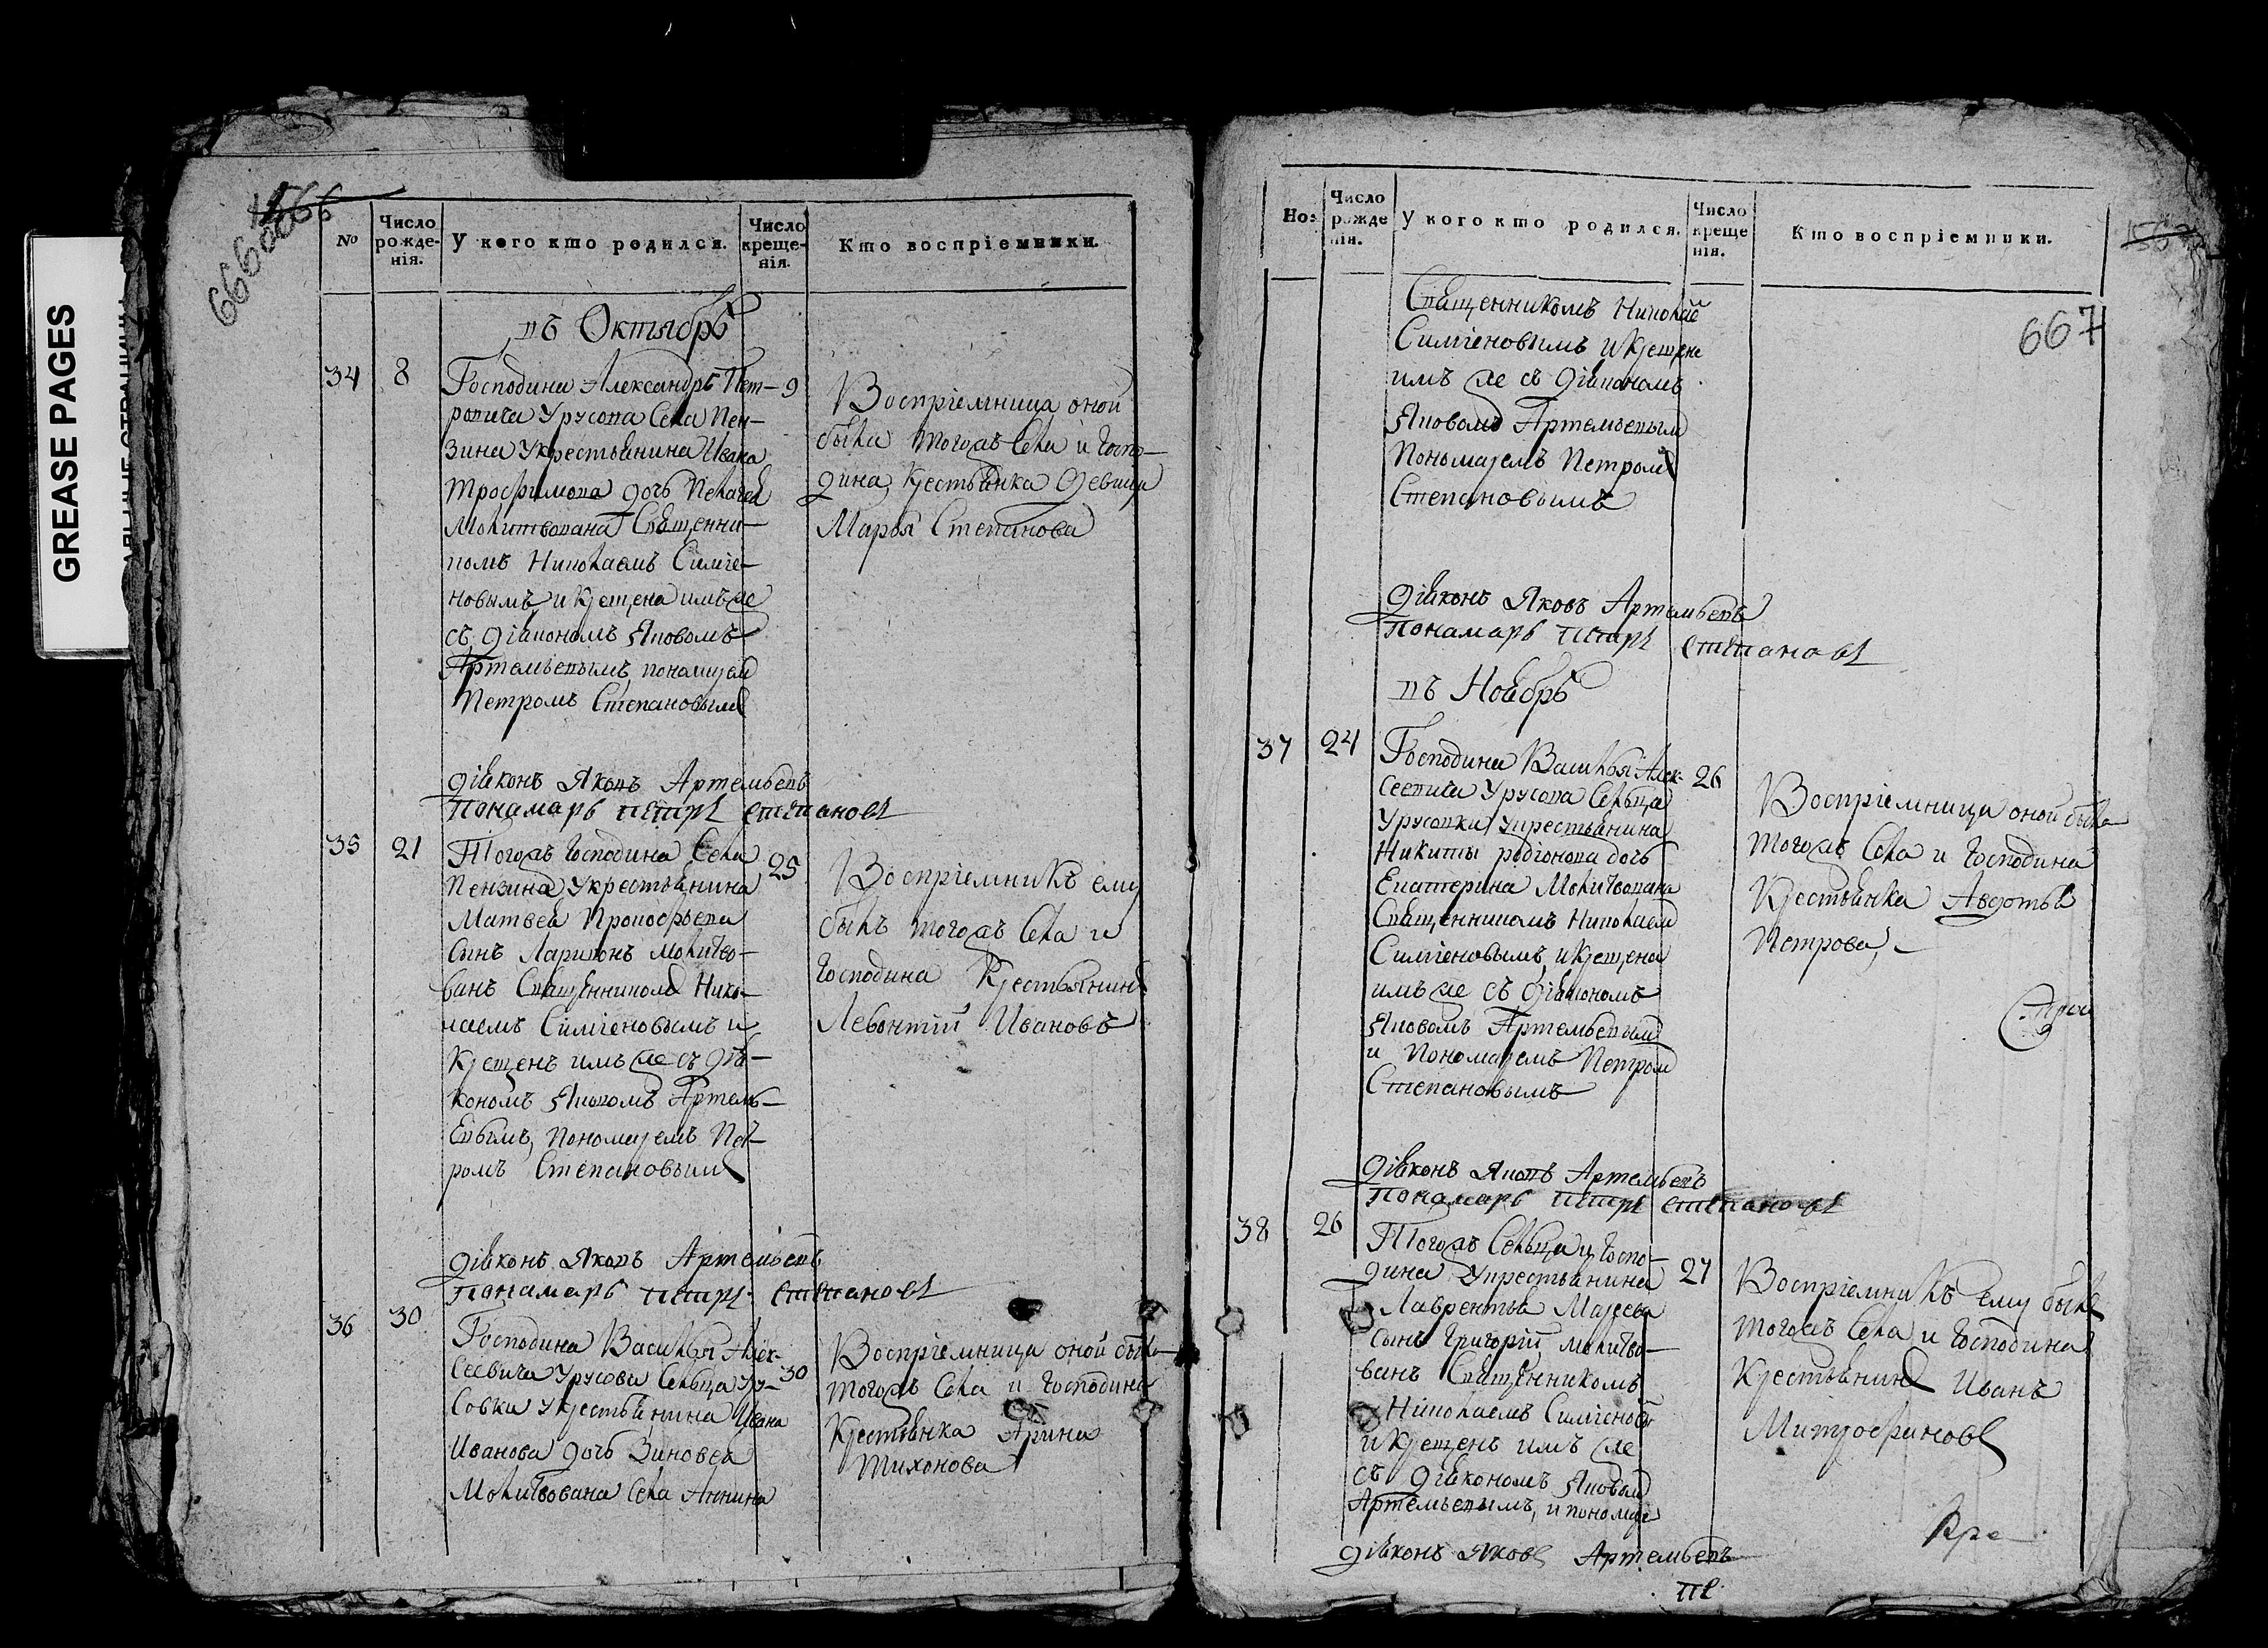 GREASE PAGES
666
№
Число рожде-нія.
У кого кто родился.
Число креще-нія.
Кто воспріемники.
въ Октябрѣ
34
8
Господина Александръ Пет-
ровича Урусова Села Пен-
зина Укрестьянина Ивана
Трофимова дочь Пелагея
Молитвована Священни-
комъ Николаемъ Симіе-
новымъ, и Крещена имъ же
съ діакономъ Яковомъ
Артемьевымъ, пономаремъ
Петромъ Степановымъ
9
Воспріемница оной
была тогожъ Села и Госпо-
дина, Крестьянка Девица
Марья Степанова
діаконъ Яковъ Артемьевъ
Понамарь петръ степановъ
35
21
Тогожъ Господина Села
Пензина Укрестьянина
Матвея Прокофьева
Сынъ Ларионъ молитво-
ванъ Священникомъ Нико-
лаемъ Симіеновымъ и
Крещенъ имъ же съ дія-
кономъ Яковомъ Артемь-
евымъ, Пономаремъ Пет-
ромъ Степановымъ
25
Воспріемникъ ему
былъ тогожъ Села и
Господина Крестьянинъ
Левонтій Ивановъ
діаконъ Яковъ Артемьевъ
Понамарь петръ степановъ
36
30
Господина Василья Алек-
сеевича Урусова Сельца Уру-
совки Укрестьянина Ивана
Иванова дочь Зиновея
Молитвована Села Аннина
30
Воспріемница оной была
тогожъ Села и Господина
Крестьянка Арина
Тихонова
Число рожде нія.
У кого кто родился.
Число креще нія.
Кто воспріемники.
667
Священникомъ Николае
Симіеновымъ и Крещена
имъ же съ діакономъ
Яковомъ Артемьевымъ
Пономаремъ Петромъ
Степановымъ
діаконъ Яковъ Артемьевъ
Понамарь петръ степановъ
въ Ноябрѣ
37
24
Господина Василья Алек-
сеевича Урусова Сельца
Урусовки Укрестьянина
Никиты родіонова дочь
Екатерина Молитвована
Священникомъ Николаемъ
Симіеновымъ, и Крещена
имъ же съ діакономъ
Яковомъ Артемьевымъ
и Пономаремъ Петромъ
Степановымъ
26
Воспріемница оной была
тогожъ Села и Господина
Крестьянка Авдотья
Петрова,
діаконъ Яковъ Артемьевъ
Понамарь петръ степановъ
38
26
Тогожъ Сельца и Госпо-
дина Укрестьянина
Лаврентья Макеева
Сынъ Григорій молитво-
ванъ Священникомъ
Николаемъ Симіеновы
и Крещенъ имъ же
съ діакономъ Яковомъ
Артемьевымъ, и пономаре
27
Воспріемникъ ему былъ
тогожъ Села и Господина
Крестьянинъ Иванъ
Митрофановъ
діаконъ Яковъ Артемьевъ